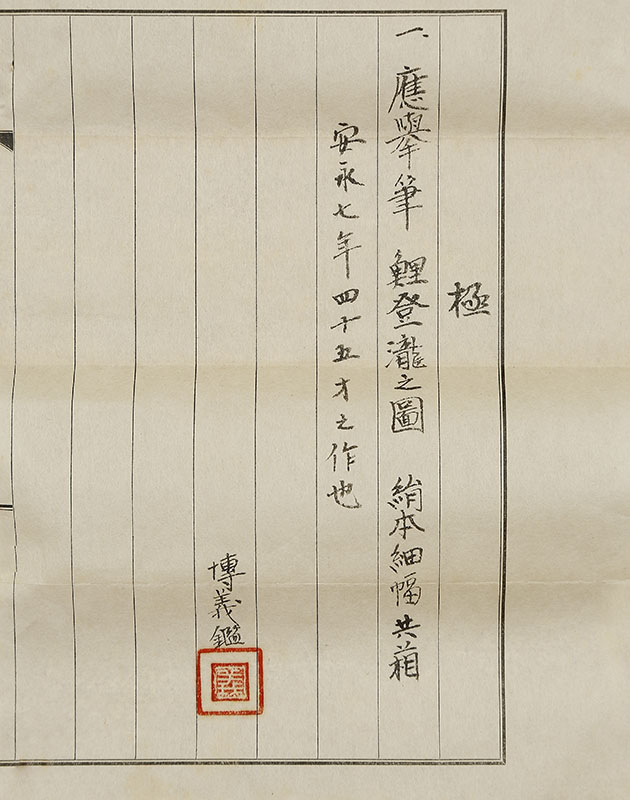 極
一、應擧筆 鯉登瀧之圖 絹本細幅共箱
安永七年四十五才之作也
博義鑑